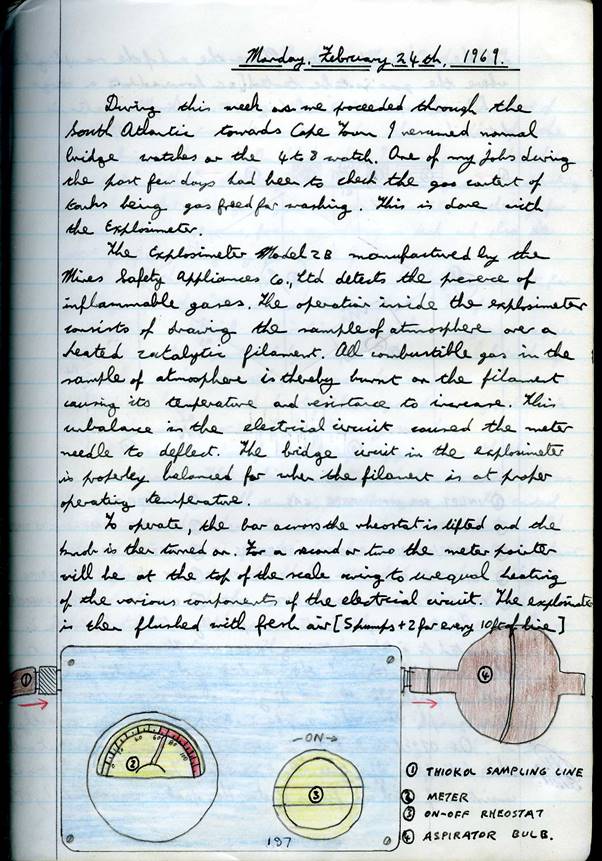 Monday, February 24th, 1969.
During this week as we proceeded through the
South Atlantic towards Cape Town I resumed normal
bridge watches on the 4 to 8 watch. One of my jobs during
the past few days had been to check the gas content of
tanks being gas freed for washing. This is done with
the Explosimeter.
The Explosimeter Model 2B manufactured by the
Mines Safety Appliances Co., Ltd detects the presence of
inflammable gases. The operation inside the explosimeter
consists of drawing the sample of atmosphere over a
heated catalytic filament. All combustible gas in the
sample of atmosphere is thereby burnt on the filament
causing its temperature and resistance to increase. This
unbalance in the electrical circuit caused the meter
needle to deflect. The bridge circuit in the explosimeter
is properly balanced for when the filament is at proper
operating temperature.
To operate, the bar across the rheostat is lifted and the
knob is then turned on. For a second or two the meter pointer
will be at the top of the scale owing to unequal heating
of the various components of the electrical circuit. The explosimeter
is then flushed with fresh air [5 pumps + 2 for every 10 ft of line]
1
4
-ON→
0 20 40 60 80 100
2
3
① THIOKOL SAMPLING LINE
② METER
③ ON-OFF RHEOSTAT
④ ASPIRATOR BULB.
197